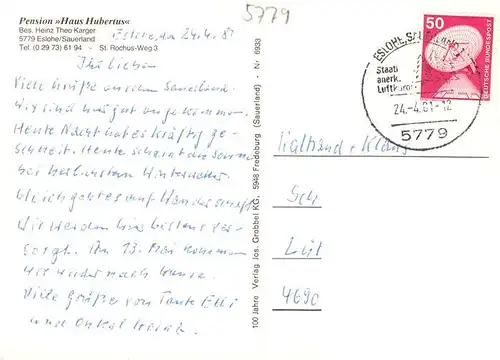 Pension »Haus Hubertus«
Bes. Heinz Theo Karger
5779 Eslohe/Sauerland
Tel. (0 29 73) 61 94 - St. Rochus-Weg 3
Eslohe, den 24.4.81
Ihr Lieben
Viele Grüße aus dem Sauerland.
Wir sind hier gut angekommen.
Heute Nacht hat es kräftig ge-
schneit. Heute scheint die Sonne
bei herbem Winterwetter
Gleich geht es auf Wanderschaft
Wir werden hier bestens ver-
sorgt. Am 13. Mai kommen
wir wieder nach Hause.
Viele Grüße von Tante Elli
und Onkel
100 Jahre Verlag Jos. Grobbel KG, 5948 Fredeburg (Sauerland) - Nr 6933
5779
50
DEUTSCHE BUNDESPOST
ESLOHE, SAUERLAND
Staatl
anerk.
Luftkurort
24.-4.81-12
5779
4690